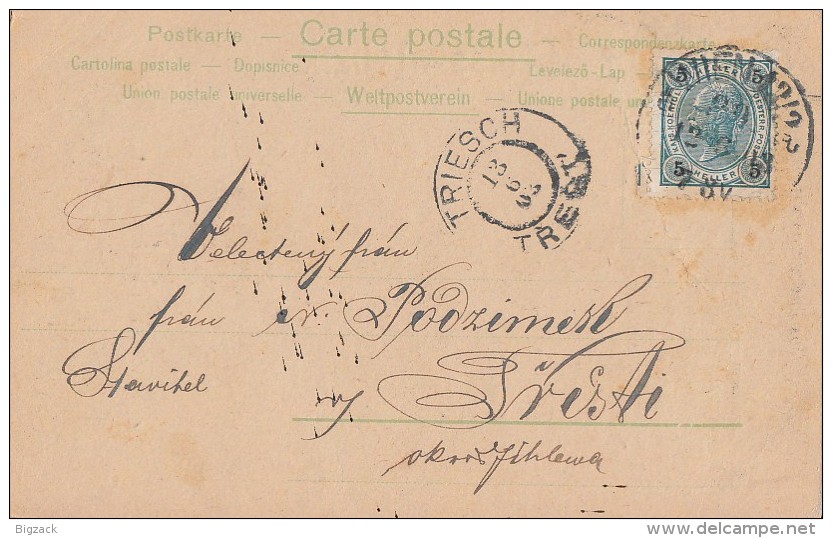 Postkarte — Carte postale — Correspondenzkarte
Cartolina postale — Dopisnice Levelező-Lap —
Union postale universelle — Weltpostverein — Unione postale
5 HELLER 5
5 HELLER 5
TRIESCH
TŘEŠŤ
13
Velectený pán
pán Podzimek
Stavitel v Třešti
okres Jihlawa
Bigzack
delcampe.net